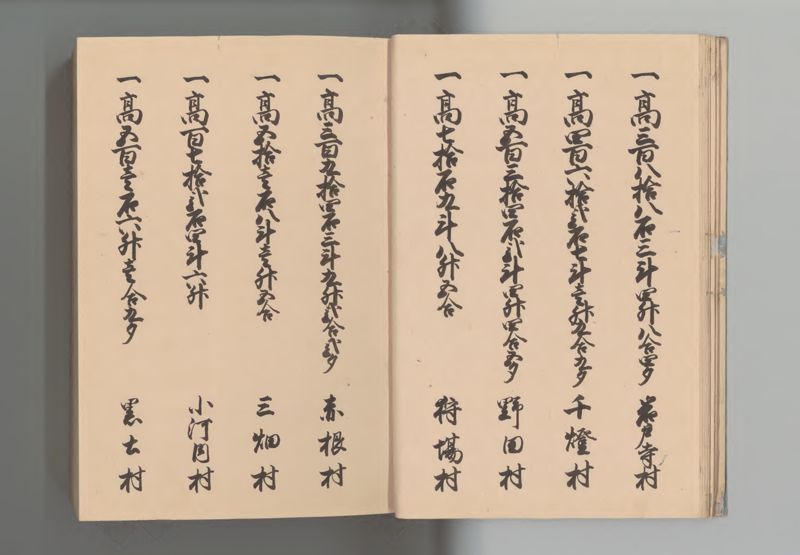 一高三百八拾八石二斗四升八合四夕 岩戸寺村
一高四百六拾弐石七斗壱升九合九夕 千燈村
一高五百三拾四石弐斗四升四合五夕 野田村
一高七拾石九斗八升五合 狩場村
一高三百九拾四石三斗九升弐合弐夕 赤根村
一高五拾壱石八斗壱升五合 三畑村
一高百七拾弐石四斗六升 小河内村
一高五百壱石六升壱合九夕 黒土村